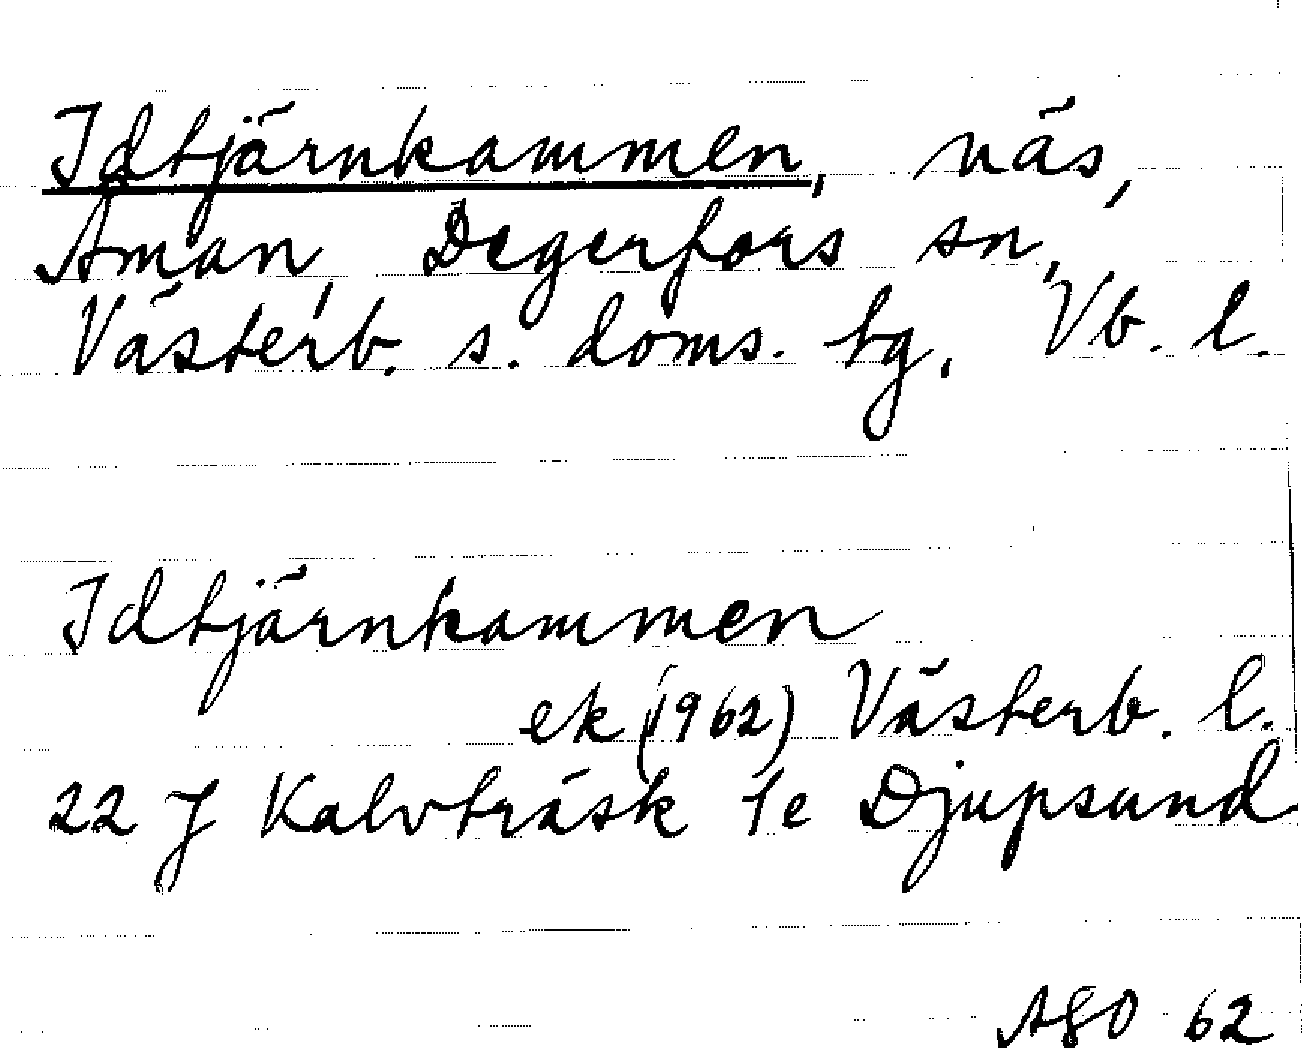 Idtjärnkammen, näs,
Åman, Degerfors sn,
Västerb. s. doms. tg, Vb. l.
Idtjärnkammen
ek (1962) Västerb. l.
22 J Kalvträsk 1e Djupsund
ABO 62